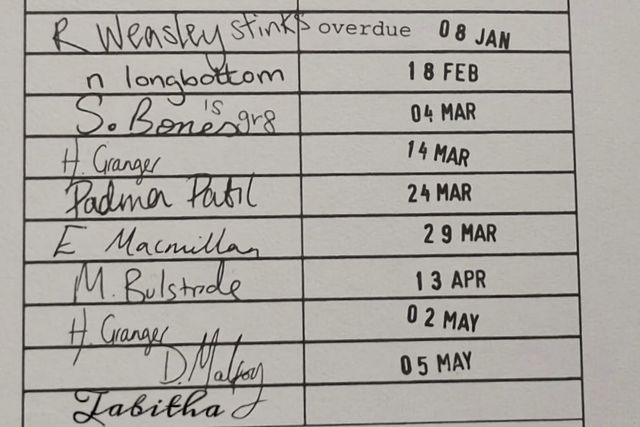 R Weasley stinks overdue 08 JAN
n longbottom 18 FEB
S. Bones is gr8 04 MAR
H. Granger 14 MAR
Padma Patil 24 MAR
E Macmillan 29 MAR
M. Bulstrode 13 APR
H. Granger 02 MAY
D. Malfoy 05 MAY
Tabitha